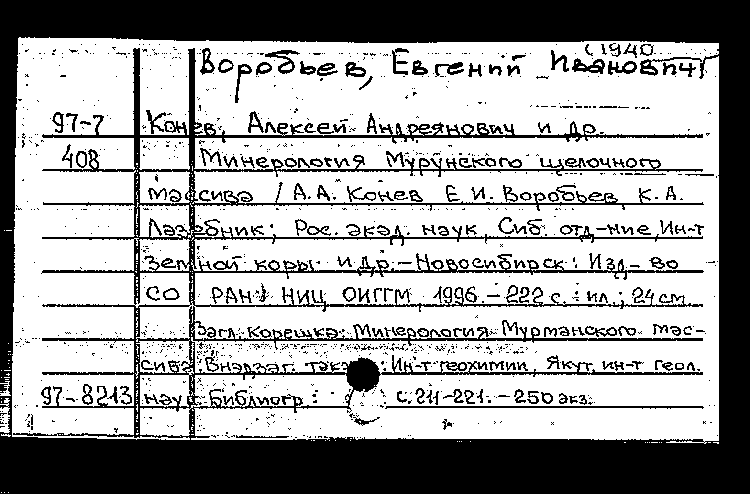 (1940
Воробьев, Евгений Иванович
97-7 Конев, Алексей Андреянович и др.
408 Минерология Мурунского щелочного
массива / А.А. Конев, Е.И. Воробьев, К.А.
Лазебник; Рос. акад. наук, Сиб. отд-ние, Ин-т
земной коры и др. - Новосибирск: Изд-во
СО РАН: НИЦ ОИГГМ, 1996. - 222 с.: ил.; 24 см.
Загл. корешка: Минерология Мурманского мас-
сива. В надзаг. также: Ин-т геохимии, Якут. ин-т геол.
97-8213 наук. Библиогр: с. 211-221. - 250 экз.